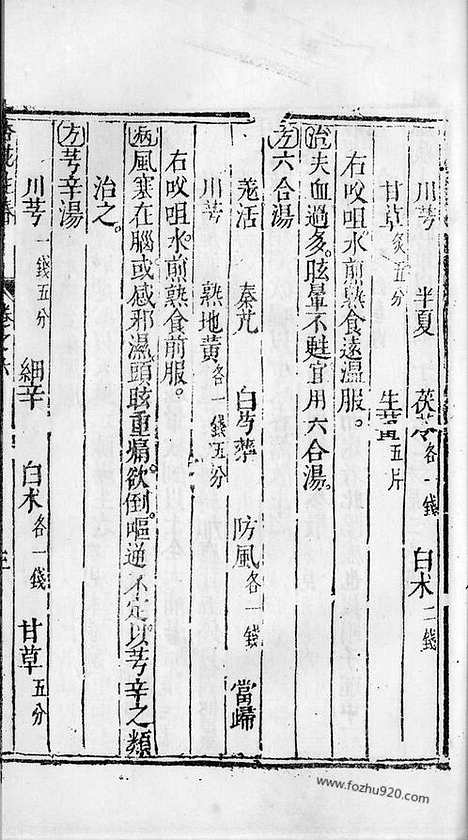 川芎 半夏 茯苓各一錢 白术二錢
甘草炙五分 生薑五片
右㕮咀水煎熟食遠溫服。
治失血過多。眩暈不甦宜用六合湯。
方六合湯
羌活 秦艽 白芍藥 防風各一錢 當歸
川芎 熟地黃各一錢五分
右㕮咀水煎熟食前服。
病風寒在腦或感邪濕頭眩重痛欲倒。嘔逆不定以芎辛之類
治之。
方芎辛湯
川芎一錢五分 細辛 白术各一錢 甘草五分
卷之六
www.fozhu920.com